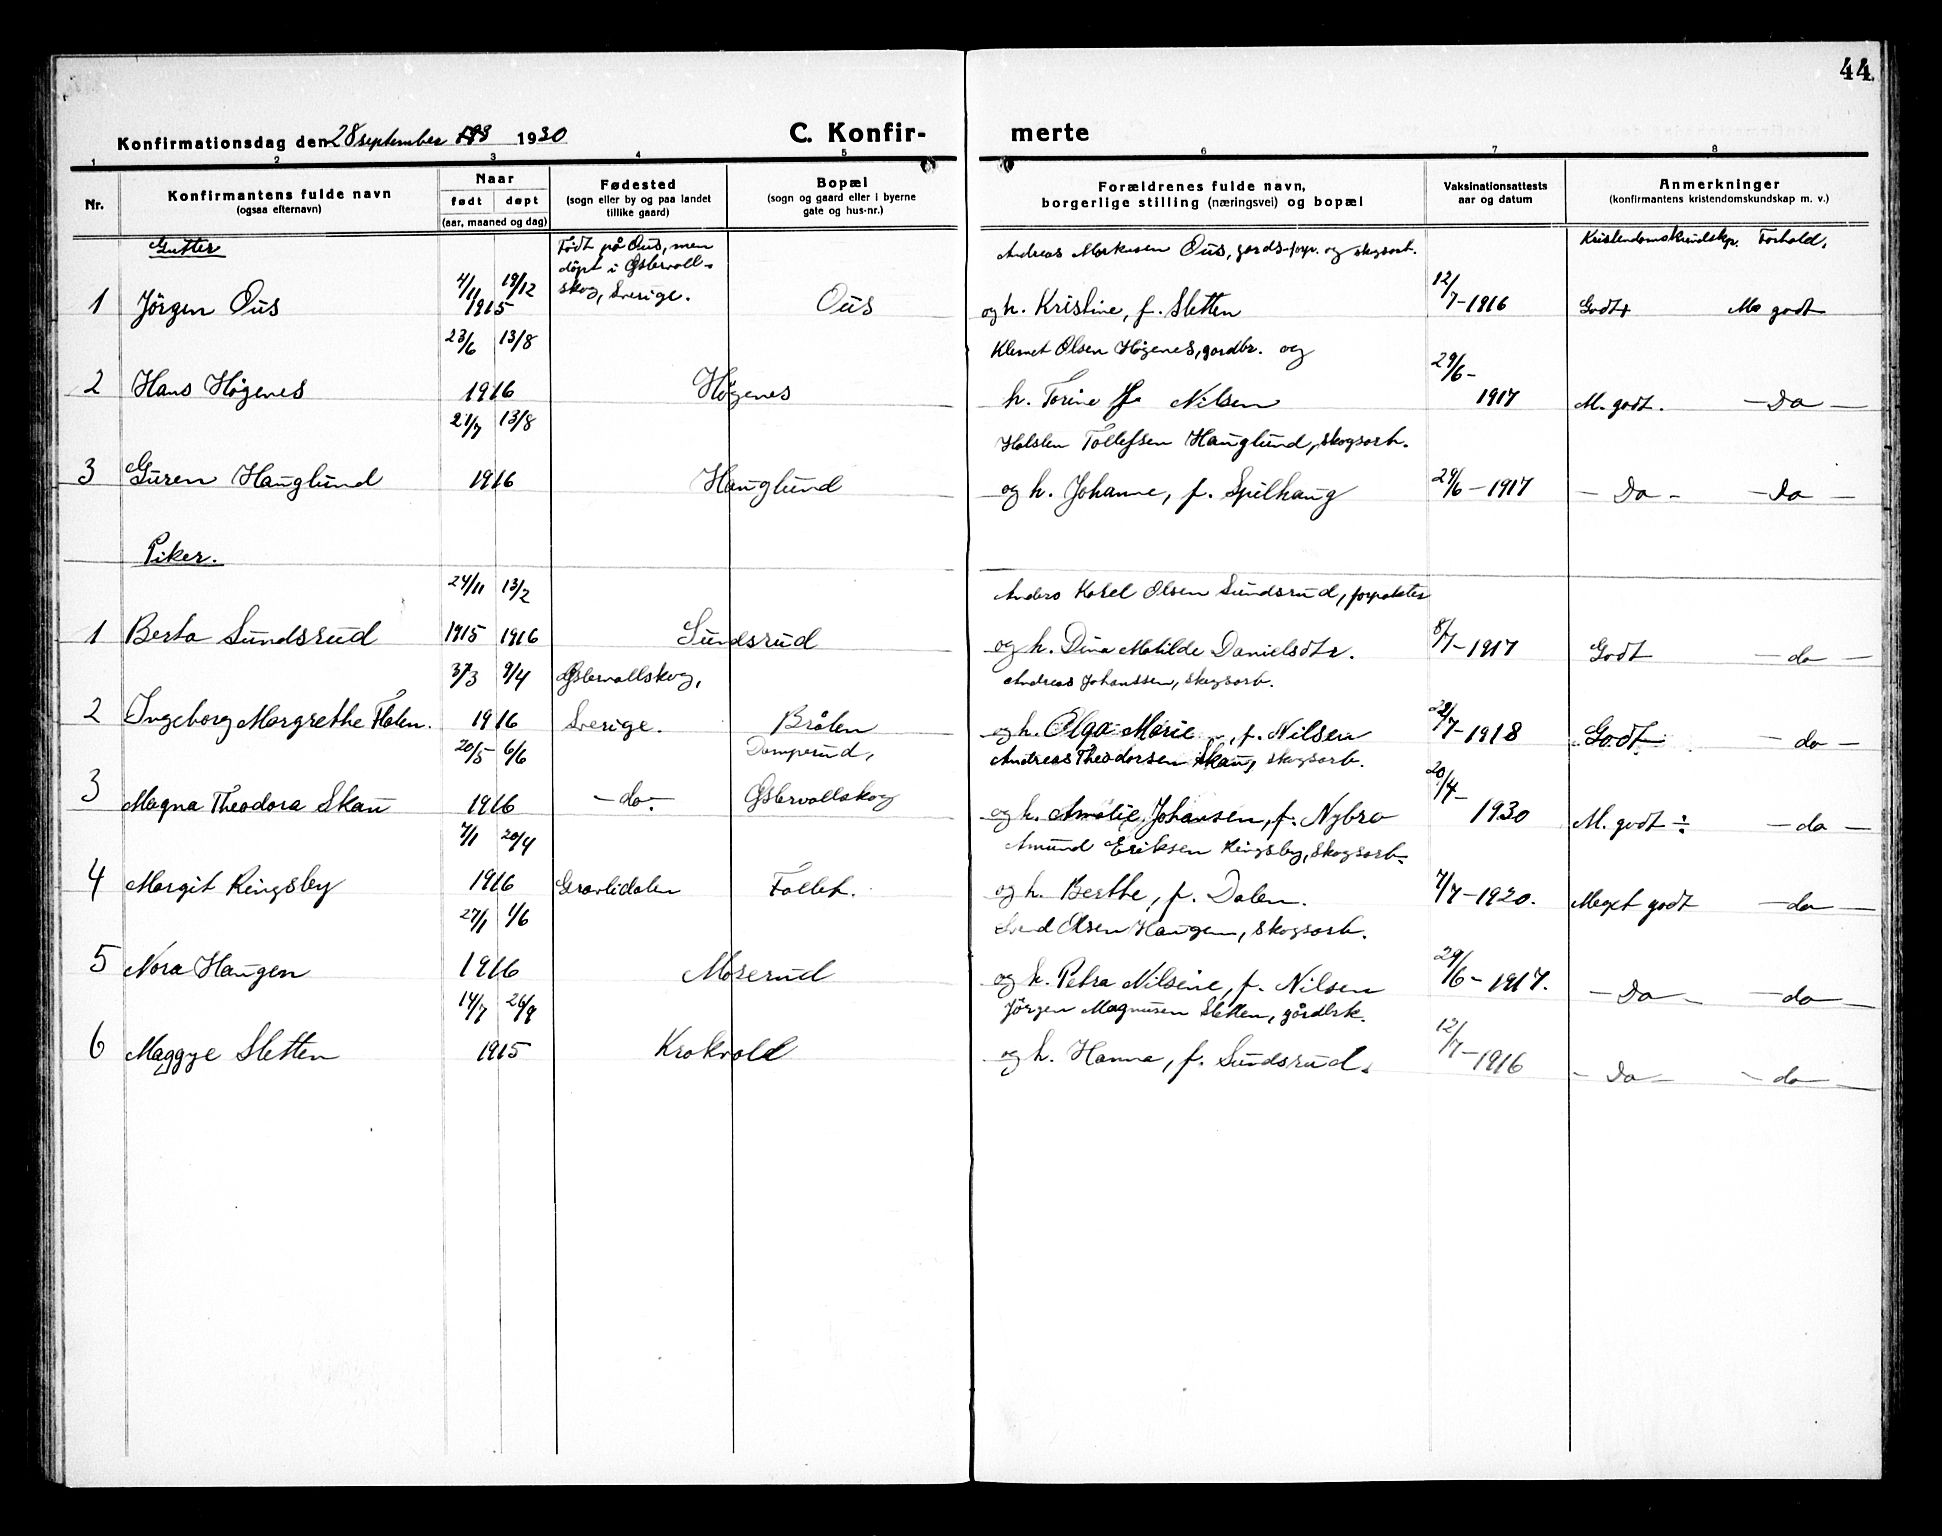 44
Konfirmationsdag den 28 september 1930
C. Konfir-
merte
1 2 3 4 5 6 7 8
Nr.
Konfirmantens fulde navn
(ogsaa efternavn)
Naar
født døpt
(aar, maaned og dag)
Fødested
(sogn eller by og paa landet
tillike gaard)
Bopæl
(sogn og gaard eller i byerne
gate og hus-nr.)
Forældrenes fulde navn,
borgerlige stilling (næringsvei) og bopæl
Vaksinationsattests
aar og datum
Anmerkninger
(konfirmantens kristendomskundskap m. v.)
Gutter
Født på Ous, men
døpt i Østervall-
skog, Sverige.
Andreas Markusen Ous, gårds-forp. og skogsarb.
Kristendomskundskp. Forhold.
4/11 19/12 12/7-1916
1 Jörgen Ous 1915 Ous og h. Kristine, f. Sletten Godt+ M. godt
23/6 13/8 Klemet Olsen Högenes, gardbr. og
2 Hans Högenes 1916 Högenes h. Torine f. Nilsen 29/6-1917 M. godt. - Do -
21/7 13/8 Halsten Tollefsen Hauglund, skogsarb.
3 Guren Hauglund 1916 Hauglund og h. Johanne, f. Spilhaug 29/6-1917 - Do - - Do -
Piker.
24/11 13/2 Anders Karel Olsen Sundsrud, forpakter
1 Berta Sundsrud 1915 1916 Sundsrud og h. Dina Matilde Danielsdtr. 8/7-1917 Godt - do -
9/4 Østervallskog, Andreas Johanssen, skogsarb.
2 Ingeborg Margrethe Flaten. 1916 Sverige. Bråten og h. Olga Marie, f. Nilsen 22/7-1918 Godt - do -
20/5 6/6 Damperud, Andreas Theodorsen Skau, skogsarb.
3 Magna Theodora Skau 1916 - do - Østervallskog og h. Amalie Johansen, f. Nybro 20/4-1930 M. godt ÷ - do -
7/1 20/4 Amund Eriksen Ringsby, skogsarb.
4 Margit Ringsby 1916 Gravlidalen Tollef. og h. Berthe, f. Dalen. 7/7-1920. Meget godt - do -
27/1 1/6 Svend Olsen Haugen, skogsarb.
5 Nora Haugen 1916 Moserud og h. Petra Nilsine, f. Nilsen 29/6-1917. - Do - - do -
14/7 26/9 Jörgen Magnusen Sletten, gårdbrk.
6 Maggye Sletten 1915 Krokvold og h. Hanna, f. Sundsrud. 12/7-1916 - Do - - do -